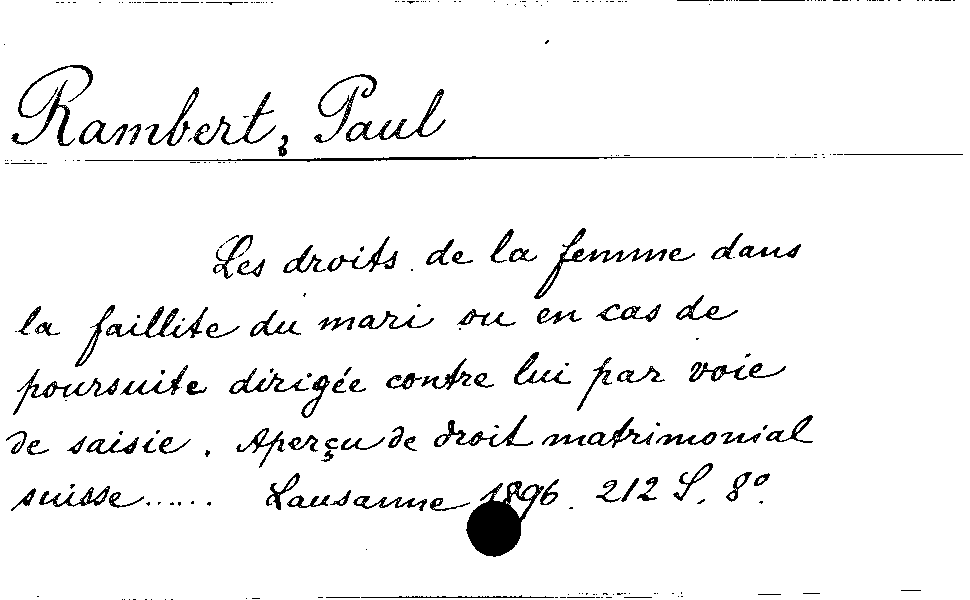 Rambert, Paul
Les droits de la femme dans
la faillite du mari ou en cas de
poursuite dirigée contre lui par voie
de saisie. Aperçu de droit matrimonial
suisse...... Lausanne 1896. 212 S. 8°.